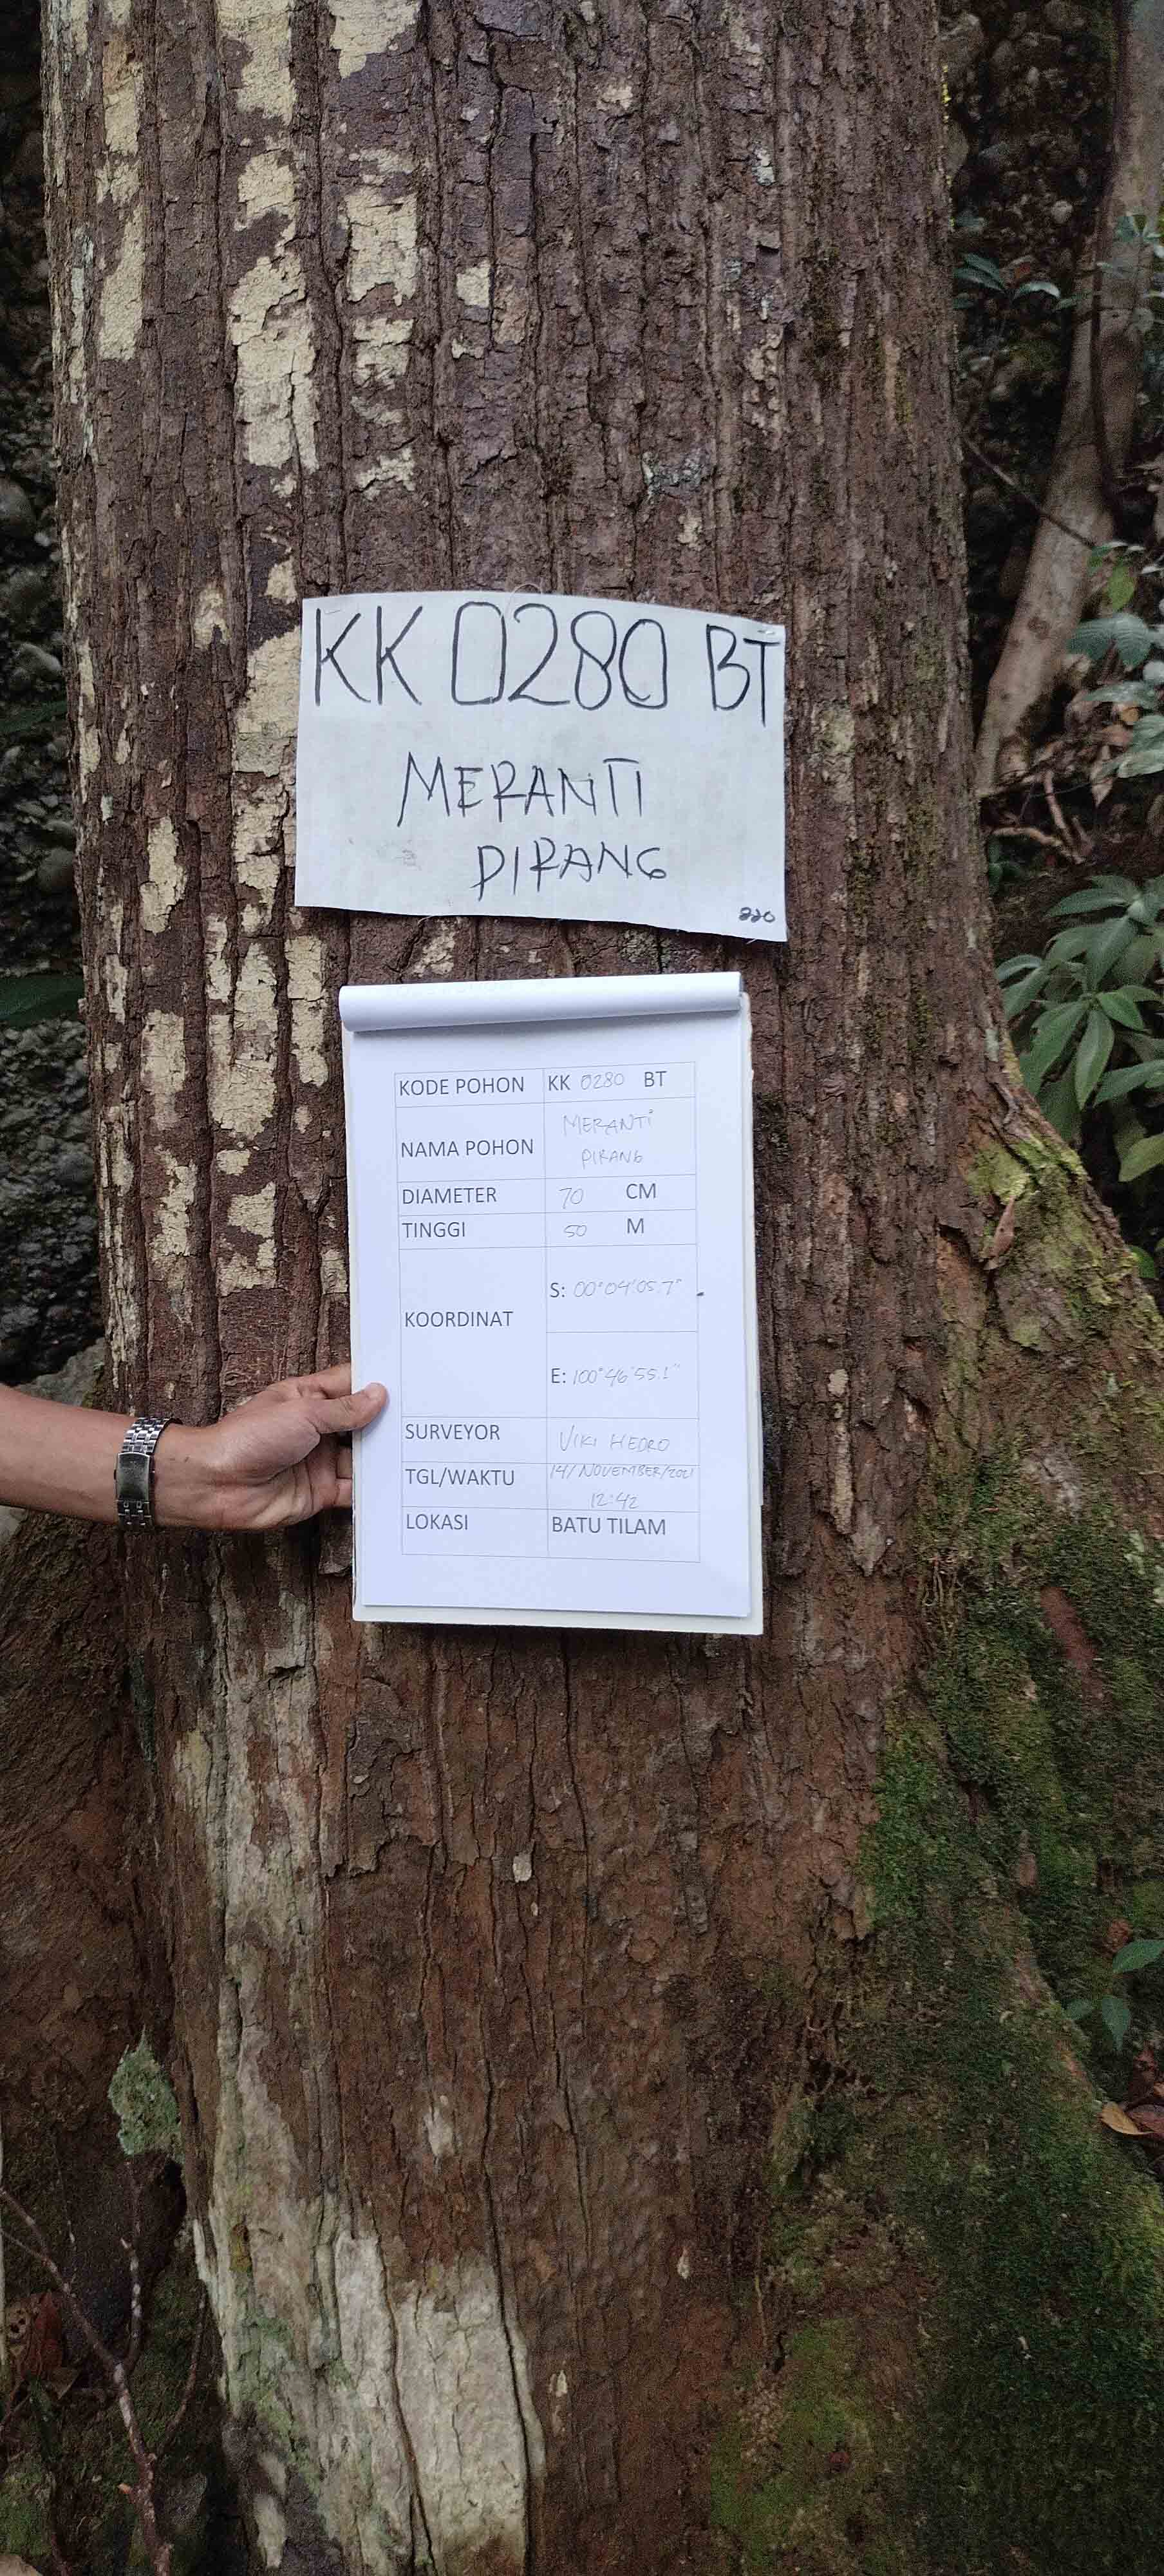 KK 0280 BT
MERANTI
PIRANG
220
KODE POHON KK 0280 BT
NAMA POHON MERANTI
PIRANG
DIAMETER 70 CM
TINGGI 50 M
KOORDINAT S: 00°04'05.7"
E: 100°46'55.1"
SURVEYOR VIKI HEDRO
TGL/WAKTU 14/NOVEMBER/2021
12:42
LOKASI BATU TILAM